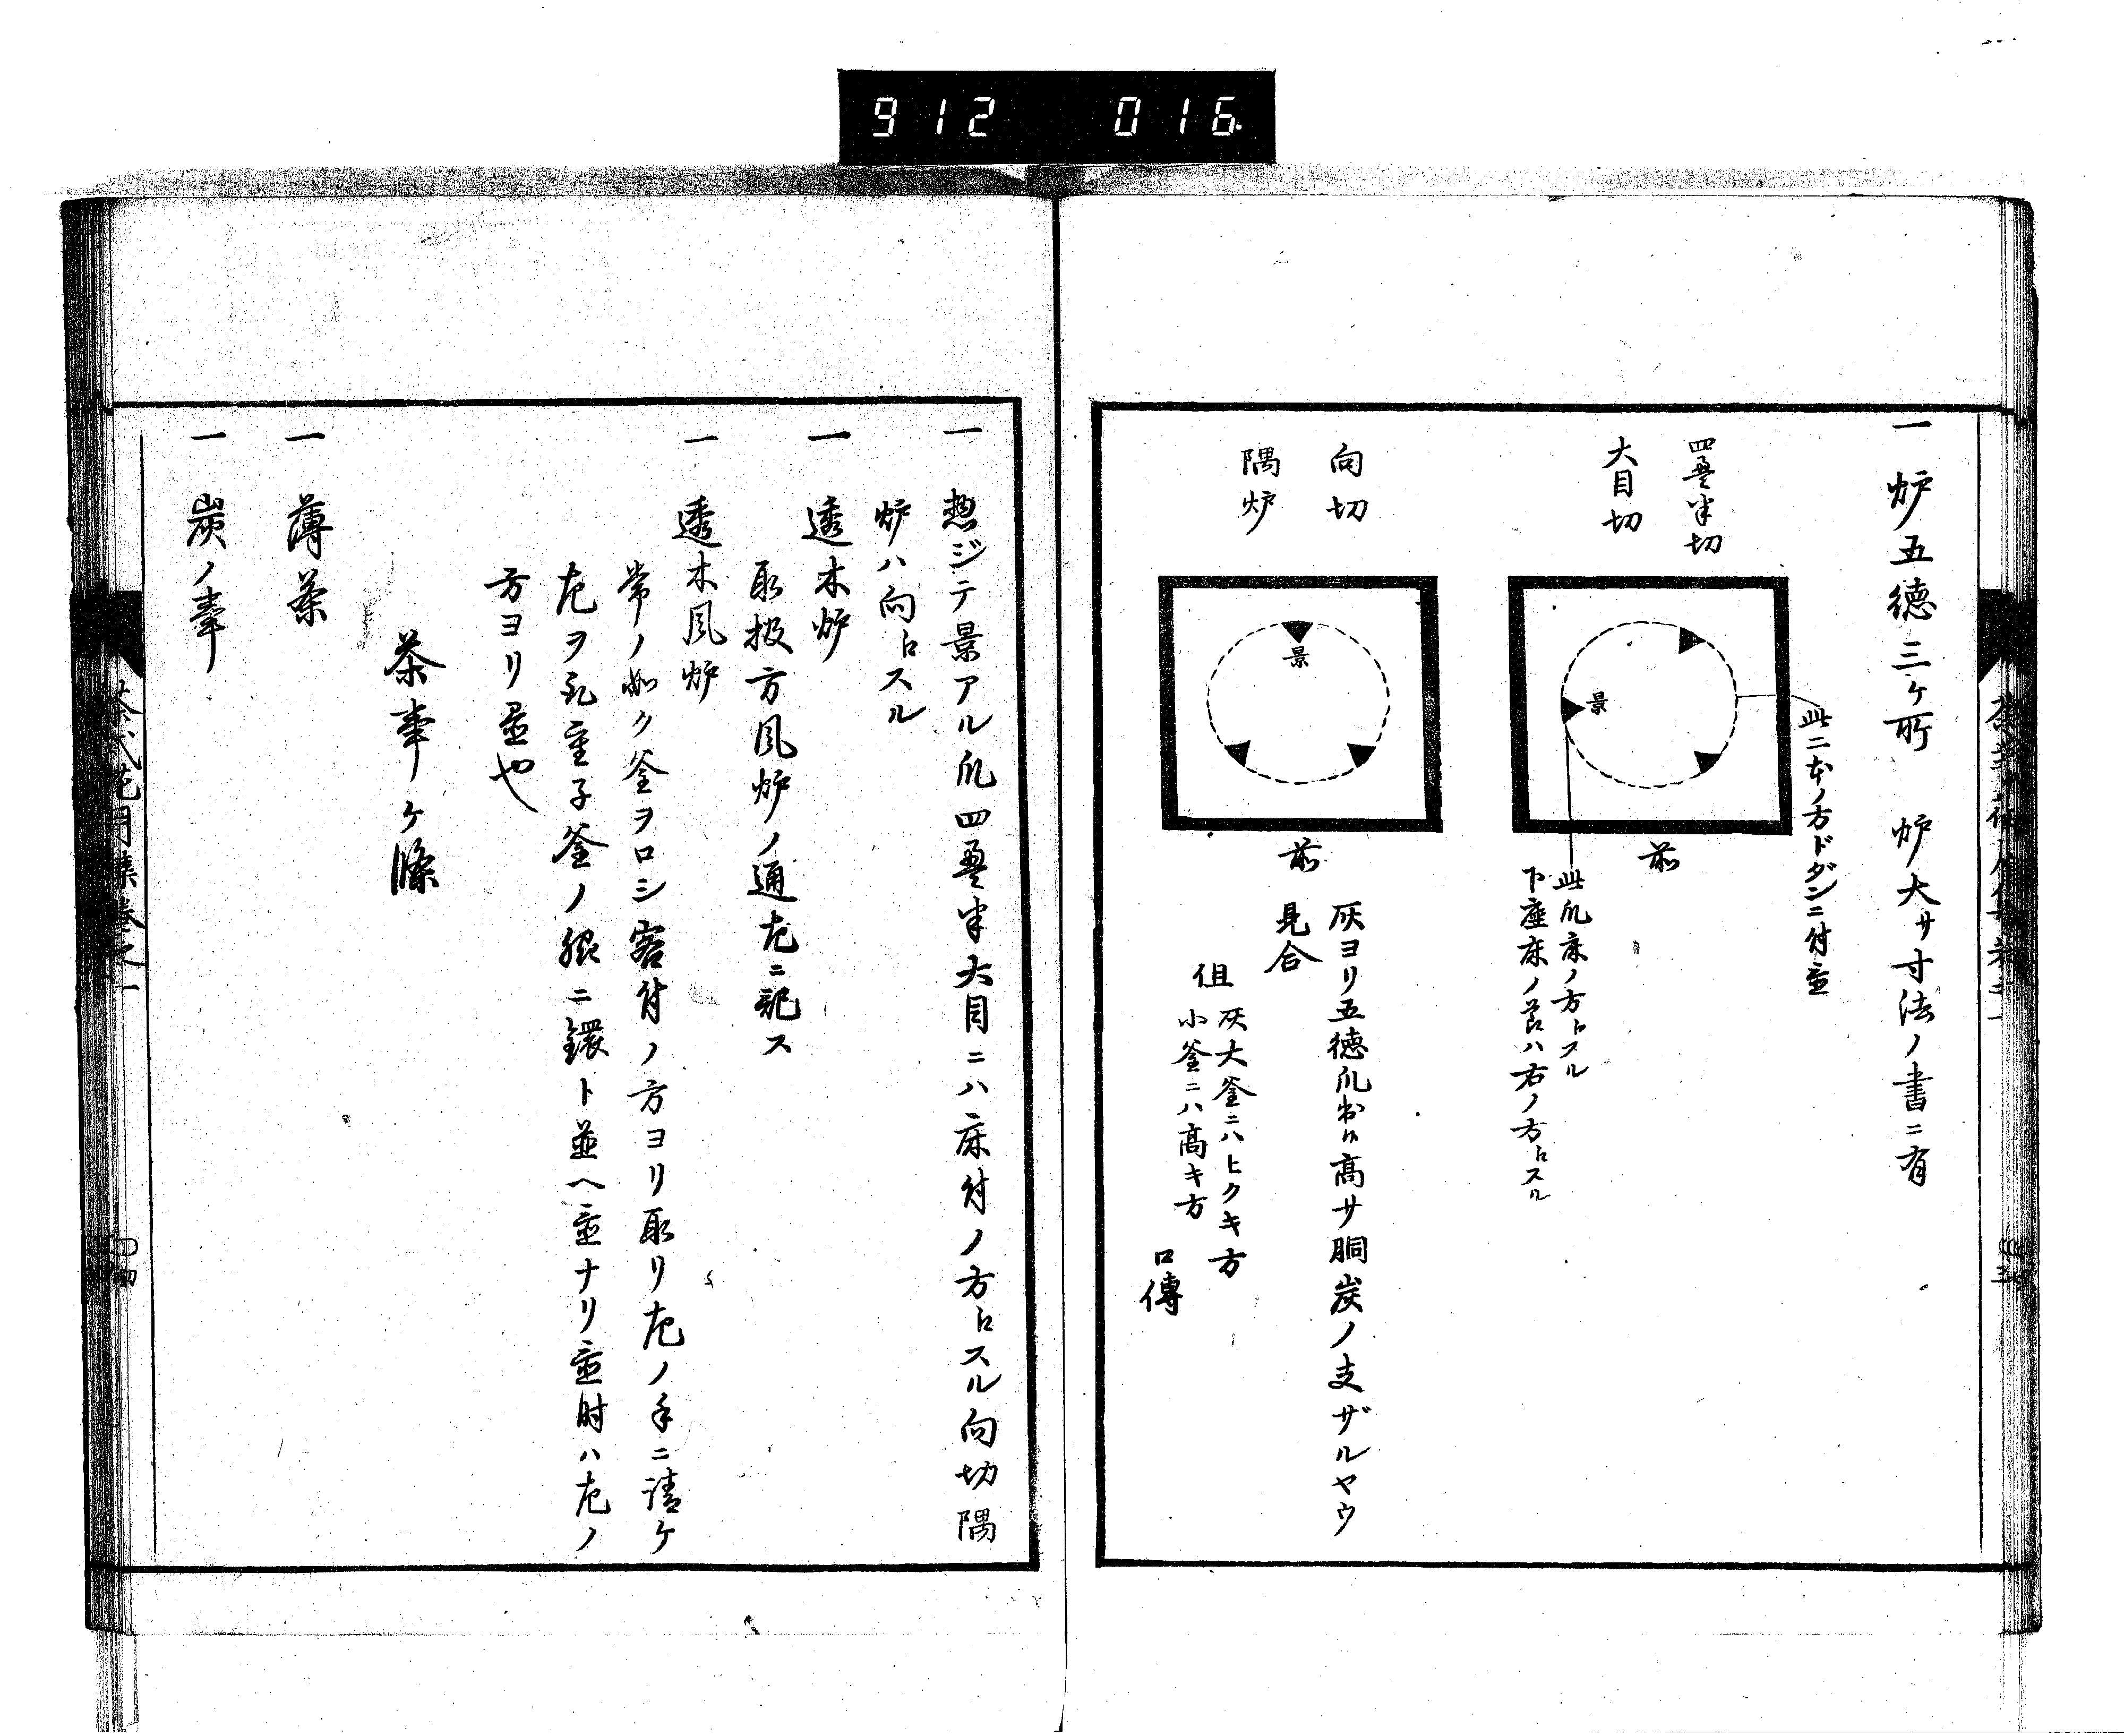 912 016.
一 炉五徳三ケ所 炉大サ寸法ノ書ニ有
四畳半切
大目切
此二本ノ方ドダンニ付置
景
前
此爪床ノ方トスル
下座床ノ節ハ右ノ方トスル
向切
隅炉
景
前
灰ヨリ五徳爪出ル高サ胴炭ノ支ザルヤウ
見合
但
灰大釜ニハヒクキ方
小釜ニハ高キ方
口傳
一 惣ジテ景アル爪四畳半大目ニハ床付ノ方トスル向切隅
炉ハ向トスル
一 透木炉
取扱方風炉ノ通左ニ記ス
一 透木風炉
常ノ如ク釜ヲロシ客付ノ方ヨリ取リ左ノ手ニ請ケ
左ヲ乳重子釜ノ脇ニ鐶ト並ヘ置ナリ置時ハ左ノ
方ヨリ置也
茶事ケ條
一 薄茶
一 炭ノ事
茶式花月集巻之一